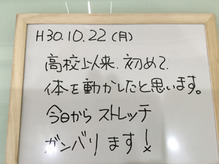 H30.10.22(月)
高校以来、初めて
体を動かしたと思います。
今日から ストレッチ
ガンバリます！